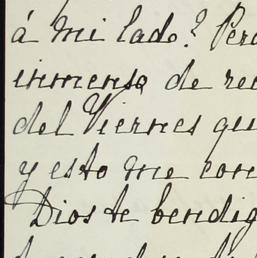 á mi lado? Pero
inmenso de re
del Viernes que
y esto me con
Dios te bendig